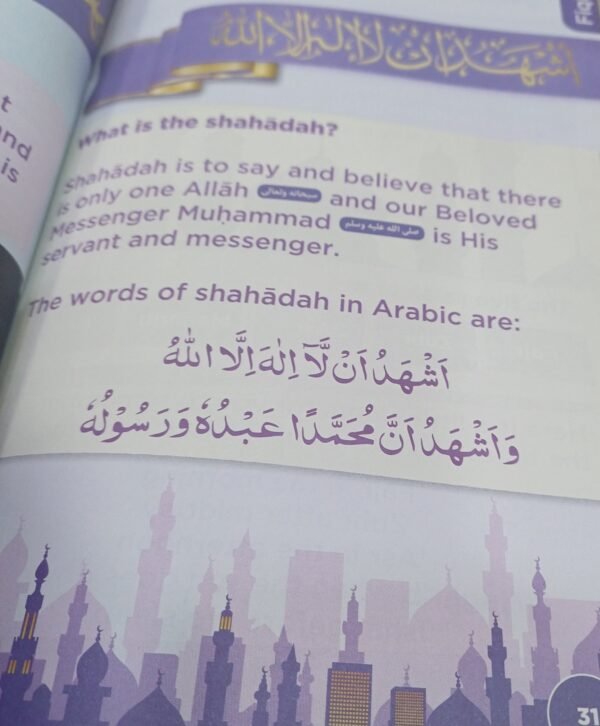 Fiq
أشهد أن لا إله إلا الله
t
nd
is
What is the shahādah?
Shahādah is to say and believe that there
is only one Allāh سبحانه وتعالى and our Beloved
Messenger Muḥammad صلى الله عليه وسلم is His
servant and messenger.
The words of shahādah in Arabic are:
اَشْهَدُ اَنْ لَّآ اِلٰهَ اِلَّا اللّٰهُ
وَاَشْهَدُ اَنَّ مُحَمَّدًا عَبْدُهٗ وَرَسُوْلُهٗ
31